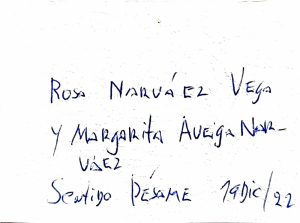 Rosa Narváez Vega
y Margarita Aveiga Nar-
váez
Sentido Pésame 19Dic/22